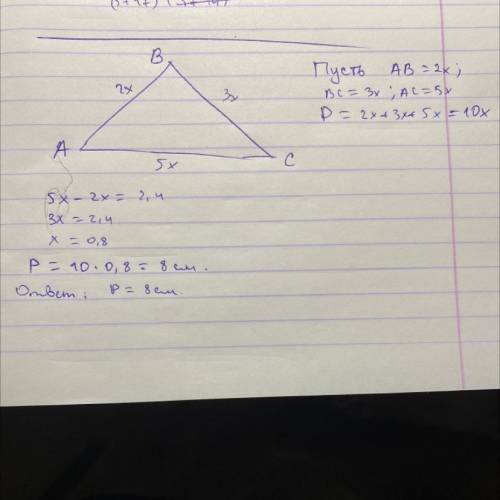 B
2x
3x
A
C
5x
Пусть AB = 2x;
BC = 3x; AC = 5x
P = 2x + 3x + 5x = 10x
5x - 2x = 2,4
3x = 2,4
x = 0,8
P = 10 · 0,8 = 8 см.
Ответ: P = 8 см.